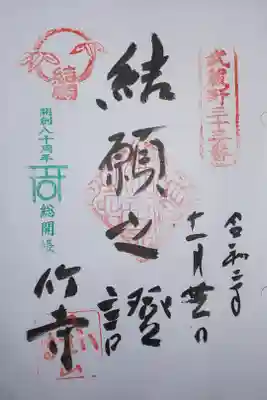 武蔵野三十三番
令和二年
十一月廿一日
結願之證
竹寺
結願
開創八十周年
総開帳